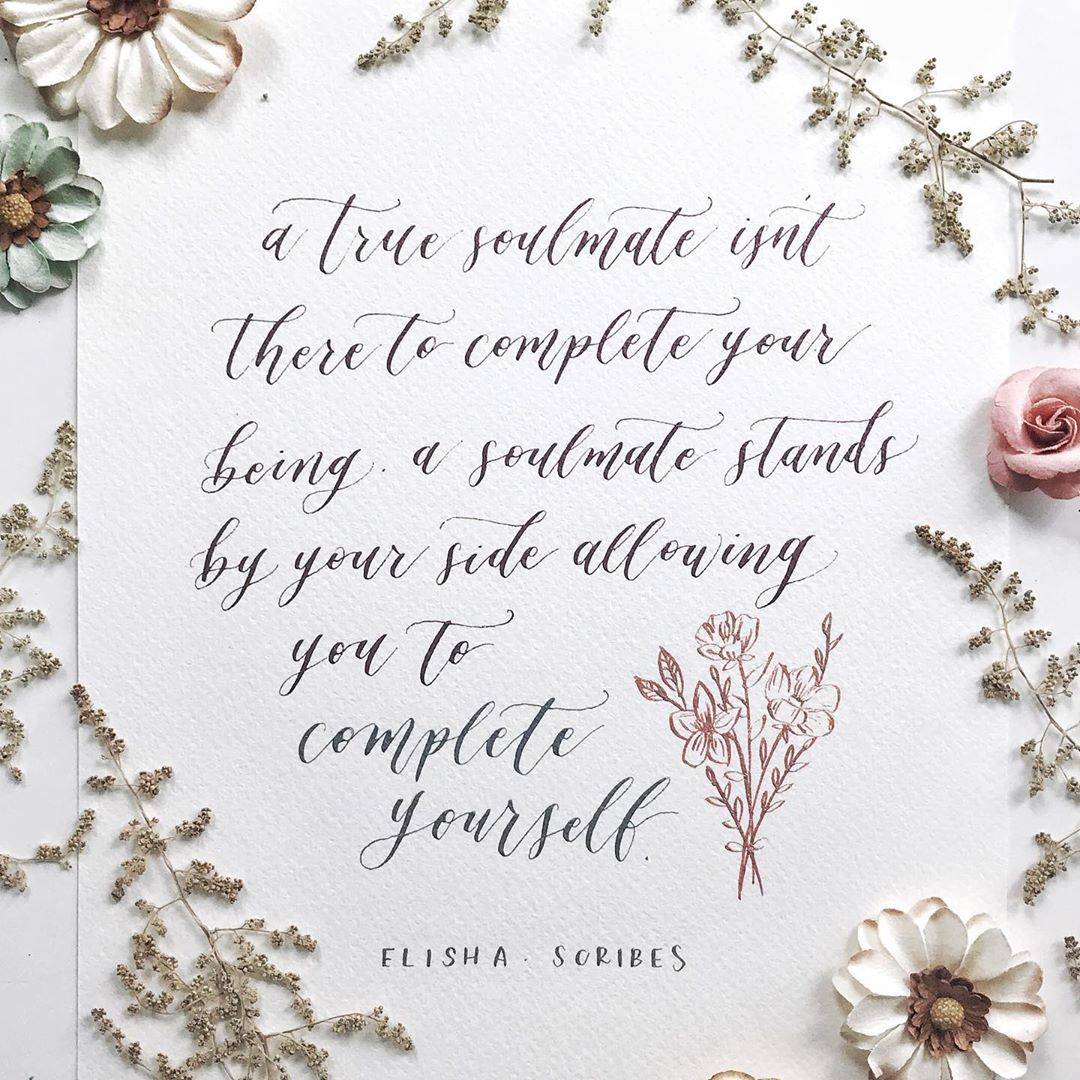 a true soulmate isn't
there to complete your
being. a soulmate stands
by your side allowing
you to
complete
yourself.
ELISHA. SCRIBES